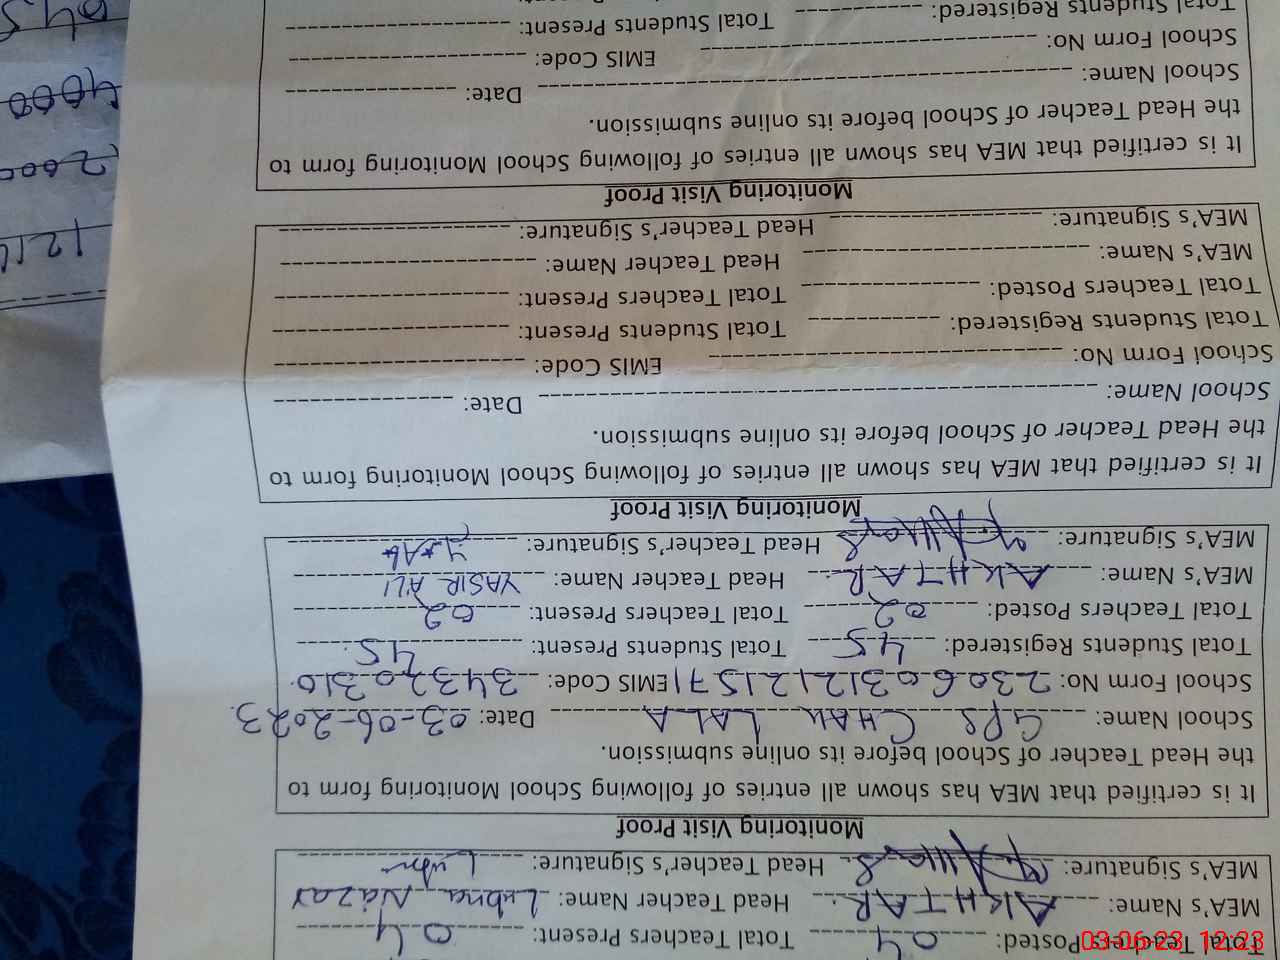 Total Teachers Posted: 04 Total Teachers Present: 04
MEA's Name: AKHTAR Head Teacher Name: Lubna Nazar
MEA's Signature: Head Teacher's Signature: Lubn
Monitoring Visit Proof
It is certified that MEA has shown all entries of following School Monitoring form to
the Head Teacher of School before its online submission.
School Name: GPS CHAK LALA Date: 03-06-2023
School Form No: 23060312121571 EMIS Code: 34320310
Total Students Registered: 45 Total Students Present: 45
Total Teachers Posted: 02 Total Teachers Present: 02
MEA's Name: AKHTAR Head Teacher Name: YASIR ALI
MEA's Signature: Head Teacher's Signature:
Monitoring Visit Proof
It is certified that MEA has shown all entries of following School Monitoring form to
the Head Teacher of School before its online submission.
School Name: Date:
School Form No: EMIS Code:
Total Students Registered: Total Students Present:
Total Teachers Posted: Total Teachers Present:
MEA's Name: Head Teacher Name:
MEA's Signature: Head Teacher's Signature:
Monitoring Visit Proof
It is certified that MEA has shown all entries of following School Monitoring form to
the Head Teacher of School before its online submission.
School Name: Date:
School Form No: EMIS Code:
Total Students Registered: Total Students Present:
4000
03-06-23 12:23